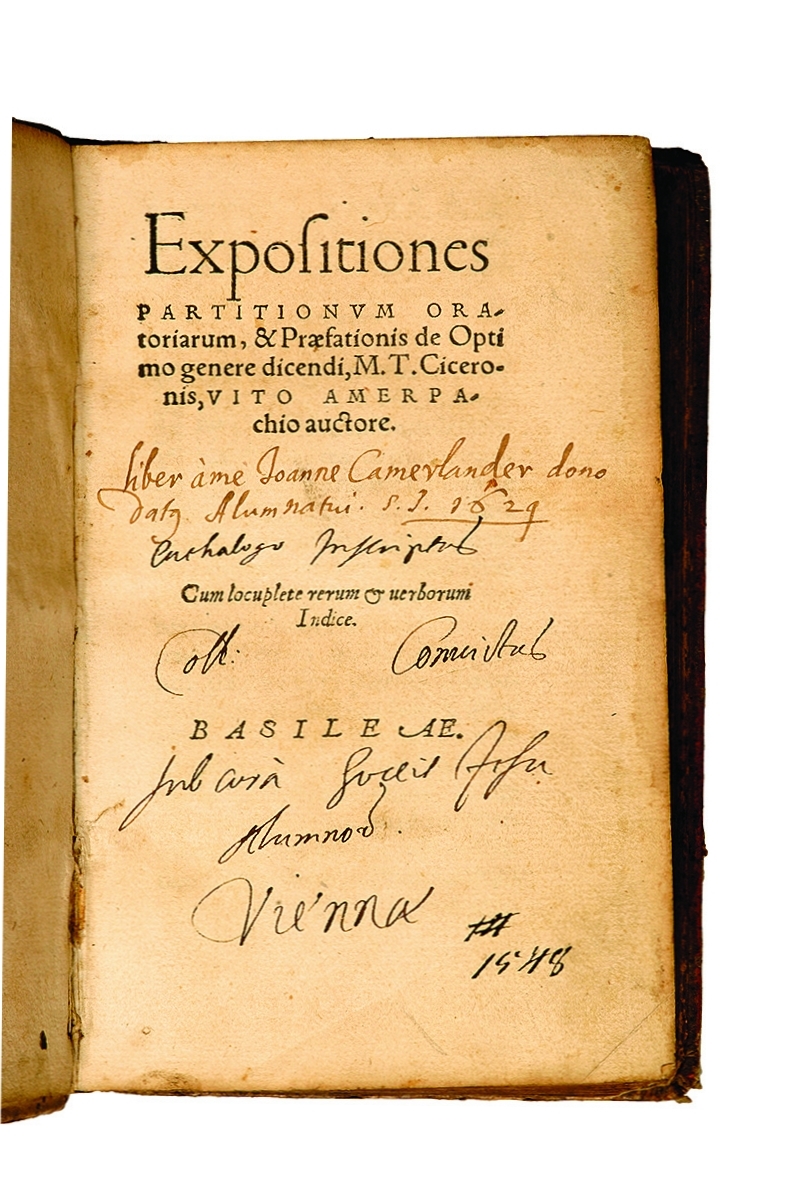 Expoſitiones
PARTITIONVM ORA-
toriarum, & Præfationis de Opti
mo genere dicendi, M. T. Cicero-
nis, VITO AMERPA-
chio auctore.
liber à me Joanne Camerlander dono
datq Alumnatui. S. J. 1629
Cathalogo Inscriptus
Cum locuplete rerum & uerborum
Indice.
Coll: Convictus
BASILEAE.
sub curà Societ Jesu
Alumnor
Viennæ
1548